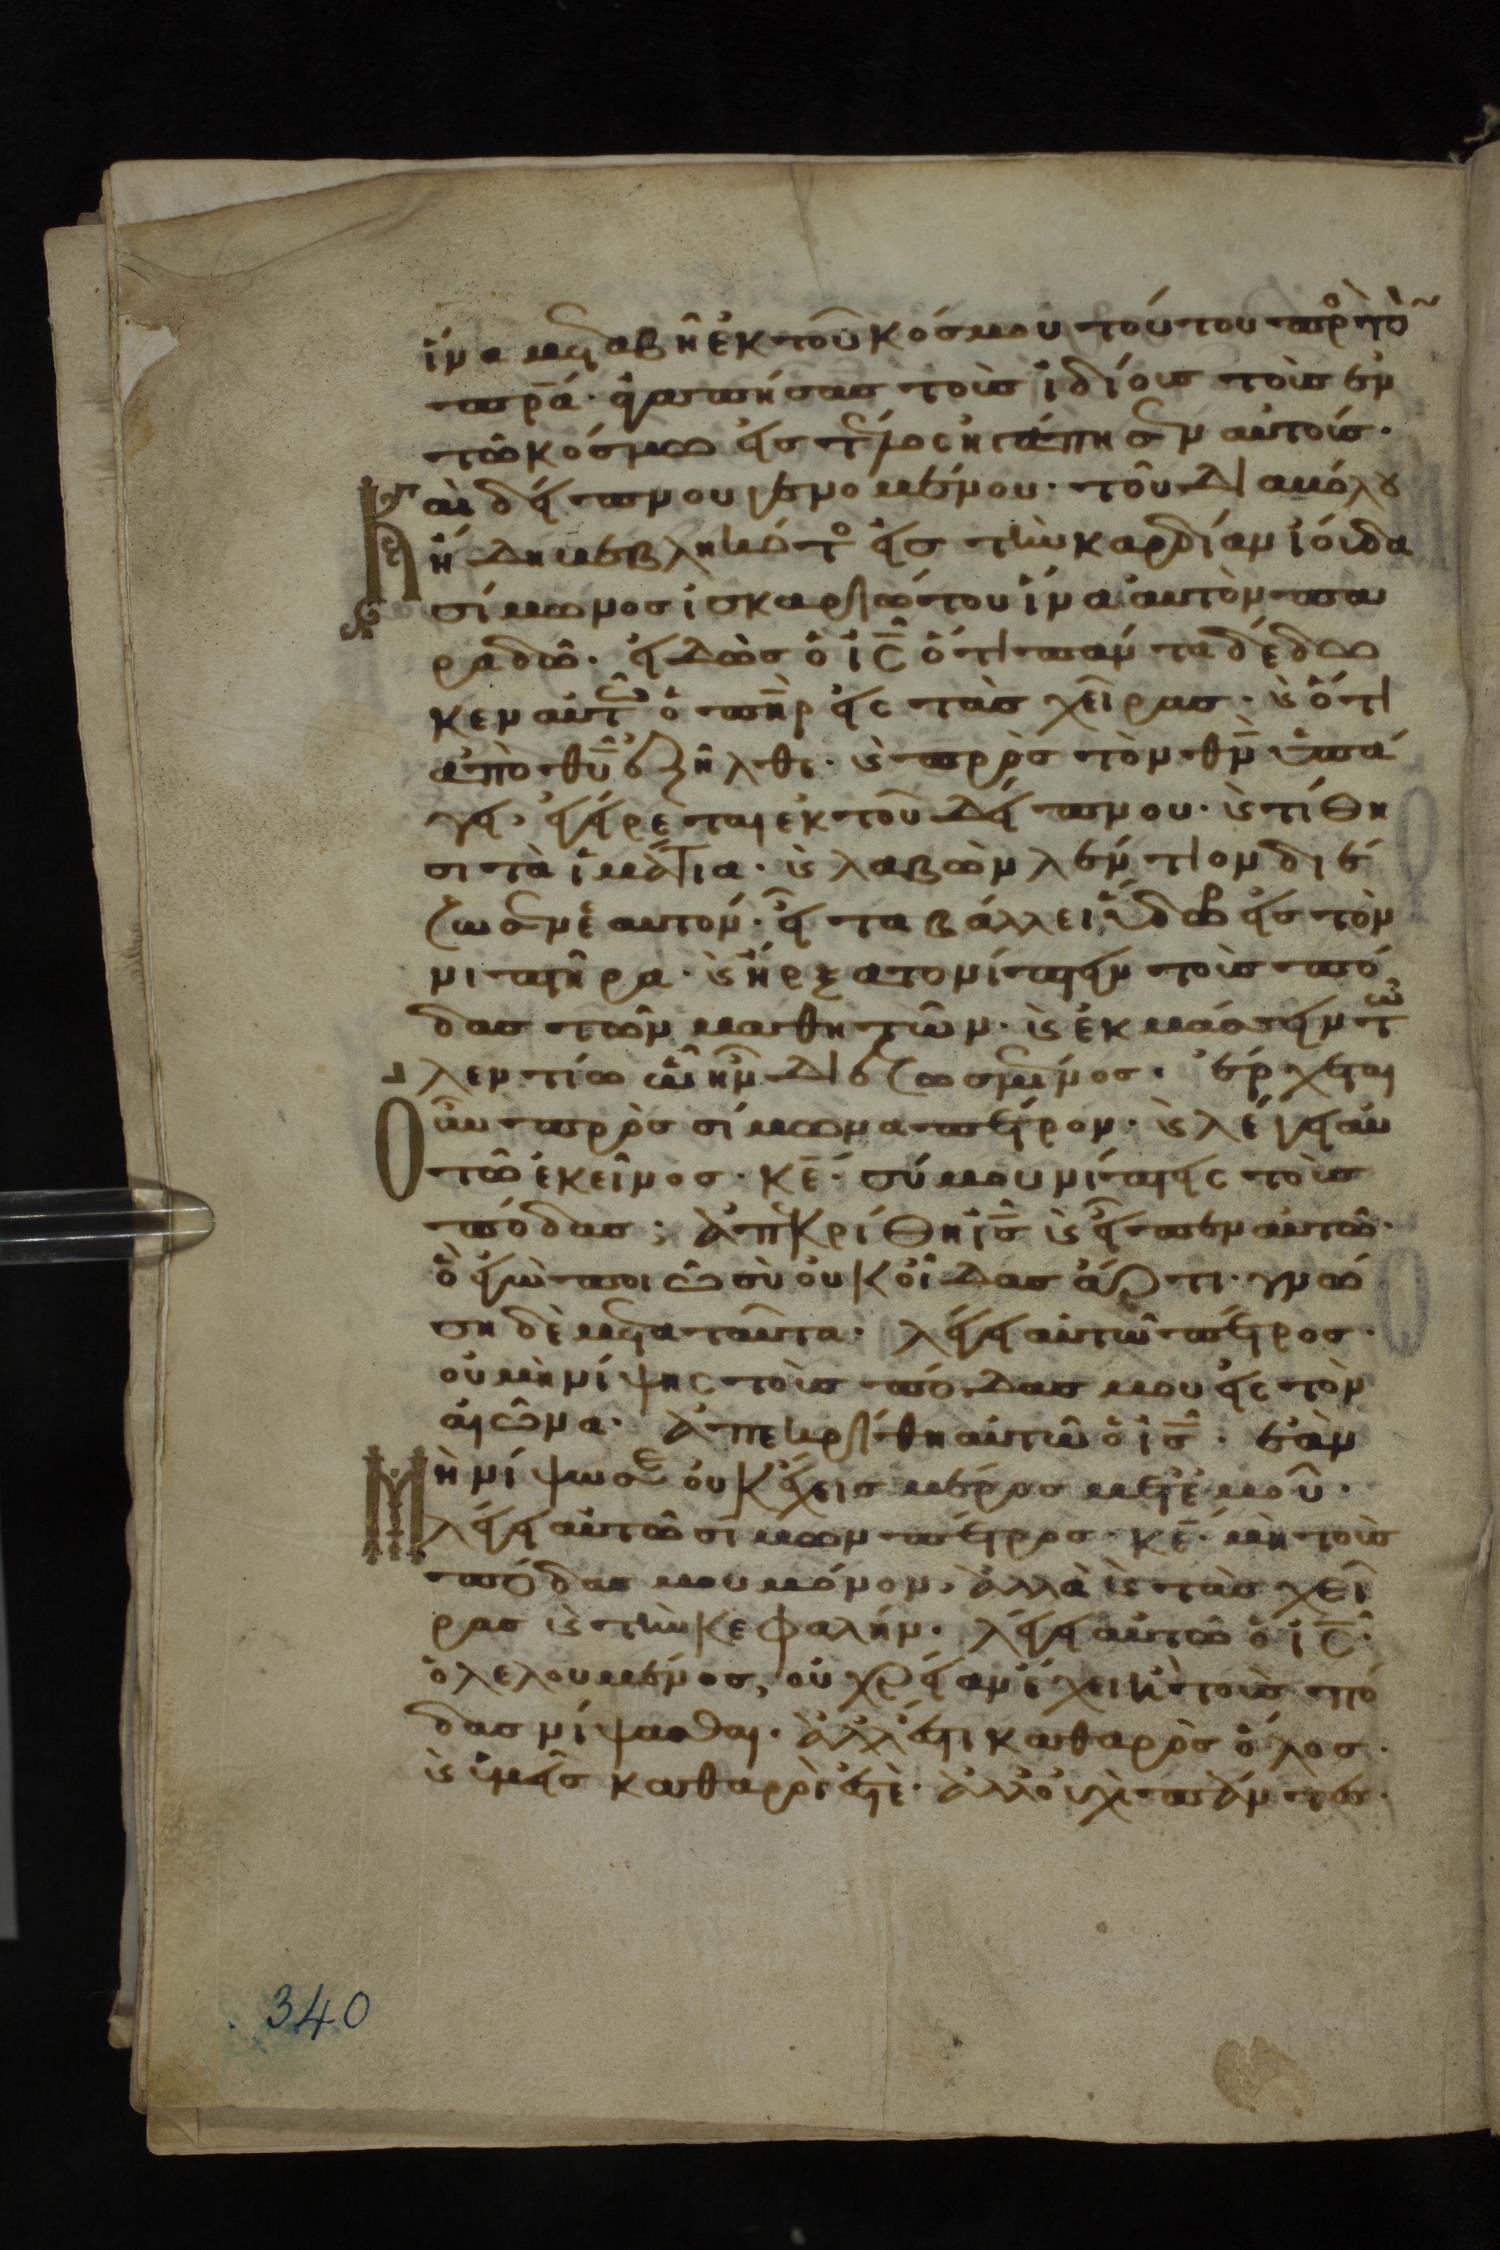 ἵνα μεταβῆ ἐκ τοῦ κόσμου τούτου πρὸς τὸν
πρ̅α̅· ἀγαπήσας τοὺς ἰδίους τοὺς ἐν
τῶ κόσμω εἰς τέλος ἠγάπησεν αὐτούς·
Καὶ δείπνου γενομένου· τοῦ διαβόλου
ἤδη βεβληκότος εἰς τὴν καρδίαν ἰούδα
σίμωνος ἰσκαριώτου ἵνα αὐτὸν πα
ραδῶ· εἰδὼς ὁ ι̅ς̅ ὅτι πάντα δέδω
κεν αὐτῶ ὁ π̅η̅ρ̅ εἰς τὰς χεῖρας· ϗ ὅτι
ἀπὸ θ̅υ̅ ἐξῆλθε· ϗ πρὸς τὸν θ̅ν̅ ὑπά
γει, ἐγείρεται ἐκ τοῦ δείπνου· ϗ τίθη
σι τὰ ἱμάτια· ϗ λαβὼν λέντιον διέ
ζωσεν ἑαυτόν· εἶτα βάλλει ὕδωρ εἰς τὸν
νιπτῆρα· ϗ ἤρξατο νίπτειν τοὺς πό
δας τῶν μαθητῶν· ϗ ἐκμάσσειν τῶ
λεντίω ὧ ἦν διεζωσμένος· ἔρχεται
Οὖν πρὸς σίμωνα πέτρον· ϗ λέγει αὐ
τῶ ἐκεῖνος· κ̅ε̅· σύ μου νίπτεις τοὺς
πόδας; ἀπεκρίθη ι̅ς̅ ϗ εἶπεν αὐτῶ·
ὃ ἐγὼ ποιῶ σὺ οὐκ οἶδας ἄρτι· γνώ
ση δὲ μετὰ ταῦτα· λέγει αὐτῶ πέτρος·
οὐ μὴ νίψης τοὺς πόδας μου εἰς τὸν
αἰῶνα· ἀπεκρίθη αὐτῶ ὁ ι̅ς̅· ἐὰν
Μὴ νίψω σε οὐκ ἔχεις μέρος μετ' ἐμοῦ·
λέγει αὐτῶ σίμων πέτρος· κ̅ε̅· μὴ τοὺς
πόδας μου μόνον, ἀλλὰ ϗ τὰς χεῖ
ρας ϗ τὴν κεφαλήν· λέγει αὐτῶ ὁ ι̅ς̅·
ὁ λελουμένος, οὐ χρείαν ἔχει ἢ τοὺς πό
δας νίψασθαι· ἀλλ' ἔστι καθαρὸς ὅλος·
ϗ ὑμεῖς καθαροὶ ἐστὲ· ἀλλ' οὐχὶ πάντες·
340